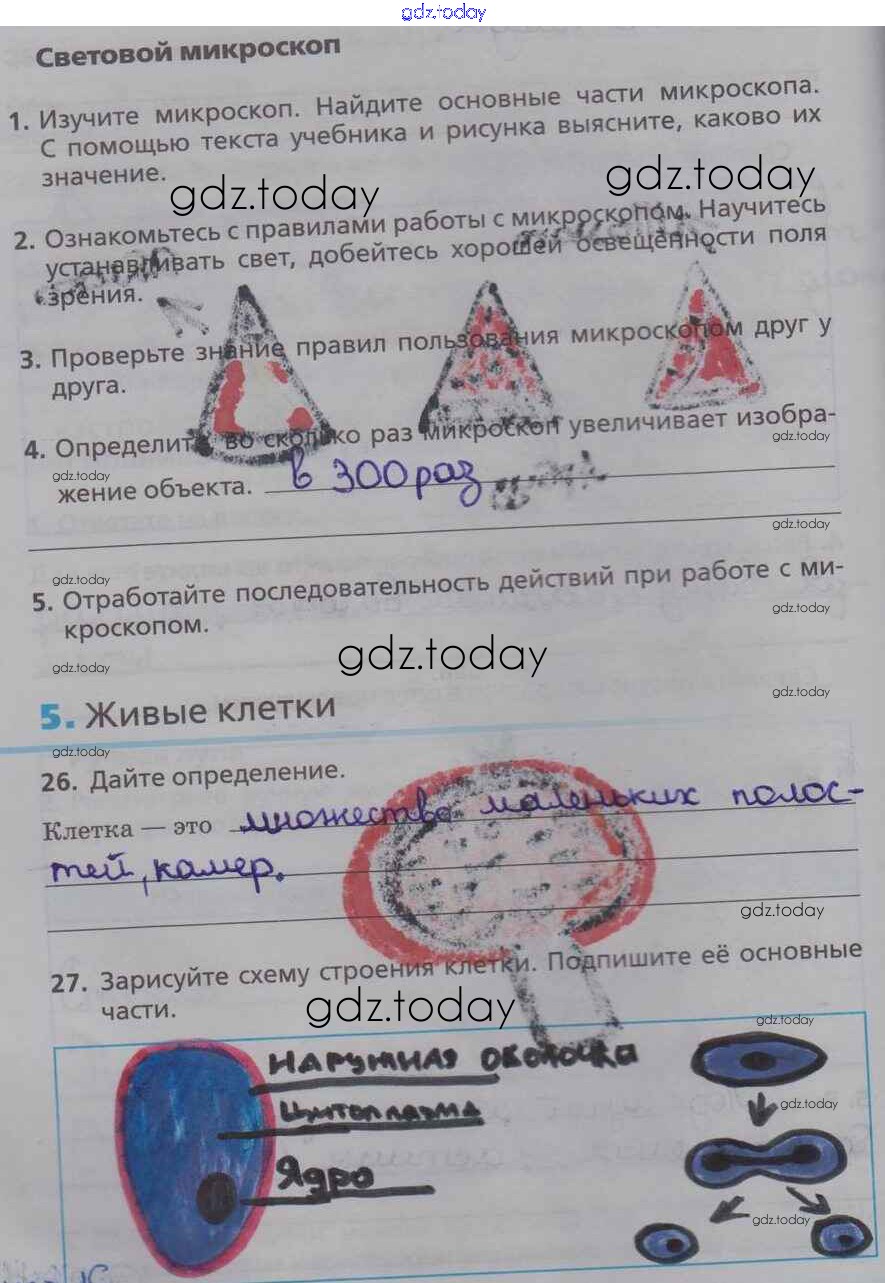 gdz.today
Световой микроскоп
1. Изучите микроскоп. Найдите основные части микроскопа.
С помощью текста учебника и рисунка выясните, каково их
значение.
gdz.today
gdz.today
2. Ознакомьтесь с правилами работы с микроскопом. Научитесь
устанавливать свет, добейтесь хорошей освещённости поля
зрения.
3. Проверьте знание правил пользования микроскопом друг у
друга.
4. Определите, во сколько раз микроскоп увеличивает изобра-
gdz.today
gdz.today
жение объекта. в 300 раз
gdz.today
gdz.today
5. Отработайте последовательность действий при работе с ми-
gdz.today
кроскопом.
gdz.today
gdz.today
gdz.today
5. Живые клетки
gdz.today
26. Дайте определение.
Клетка — это множество маленьких полос-
тей, камер.
gdz.today
27. Зарисуйте схему строения клетки. Подпишите её основные
части.
gdz.today
gdz.today
Наружная оболочка
Цитоплазма
gdz.today
Ядро
gdz.today